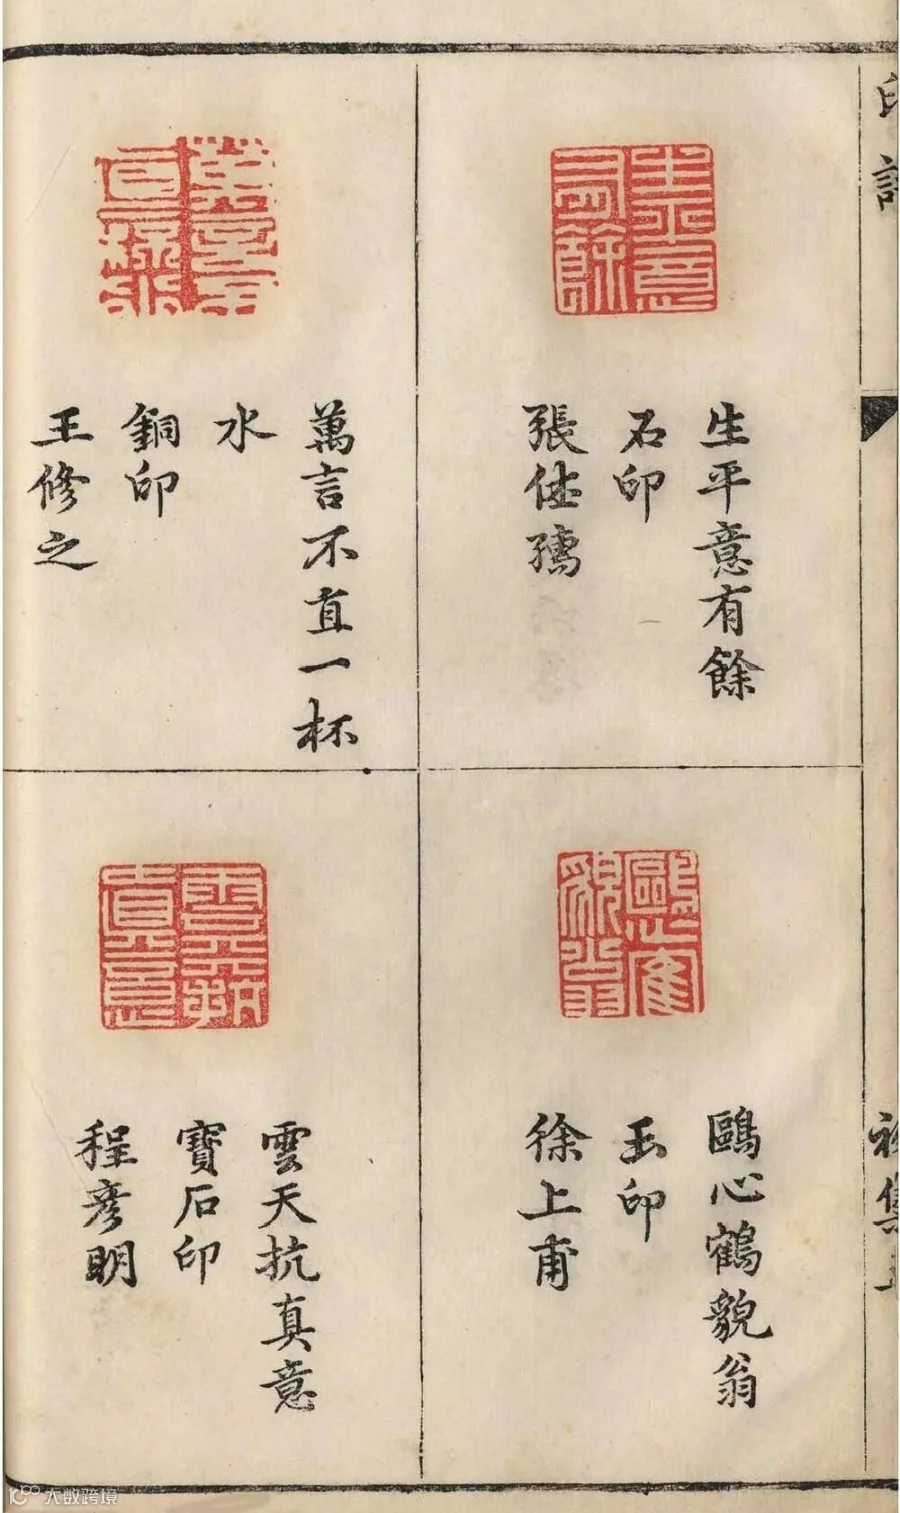 生平意有餘
石印
萬言不直一杯
水
銅印
王修之
鷗心鶴貌翁
玉印
徐上甫
雲天抗真意
寶石印
程彦明
大数跨境